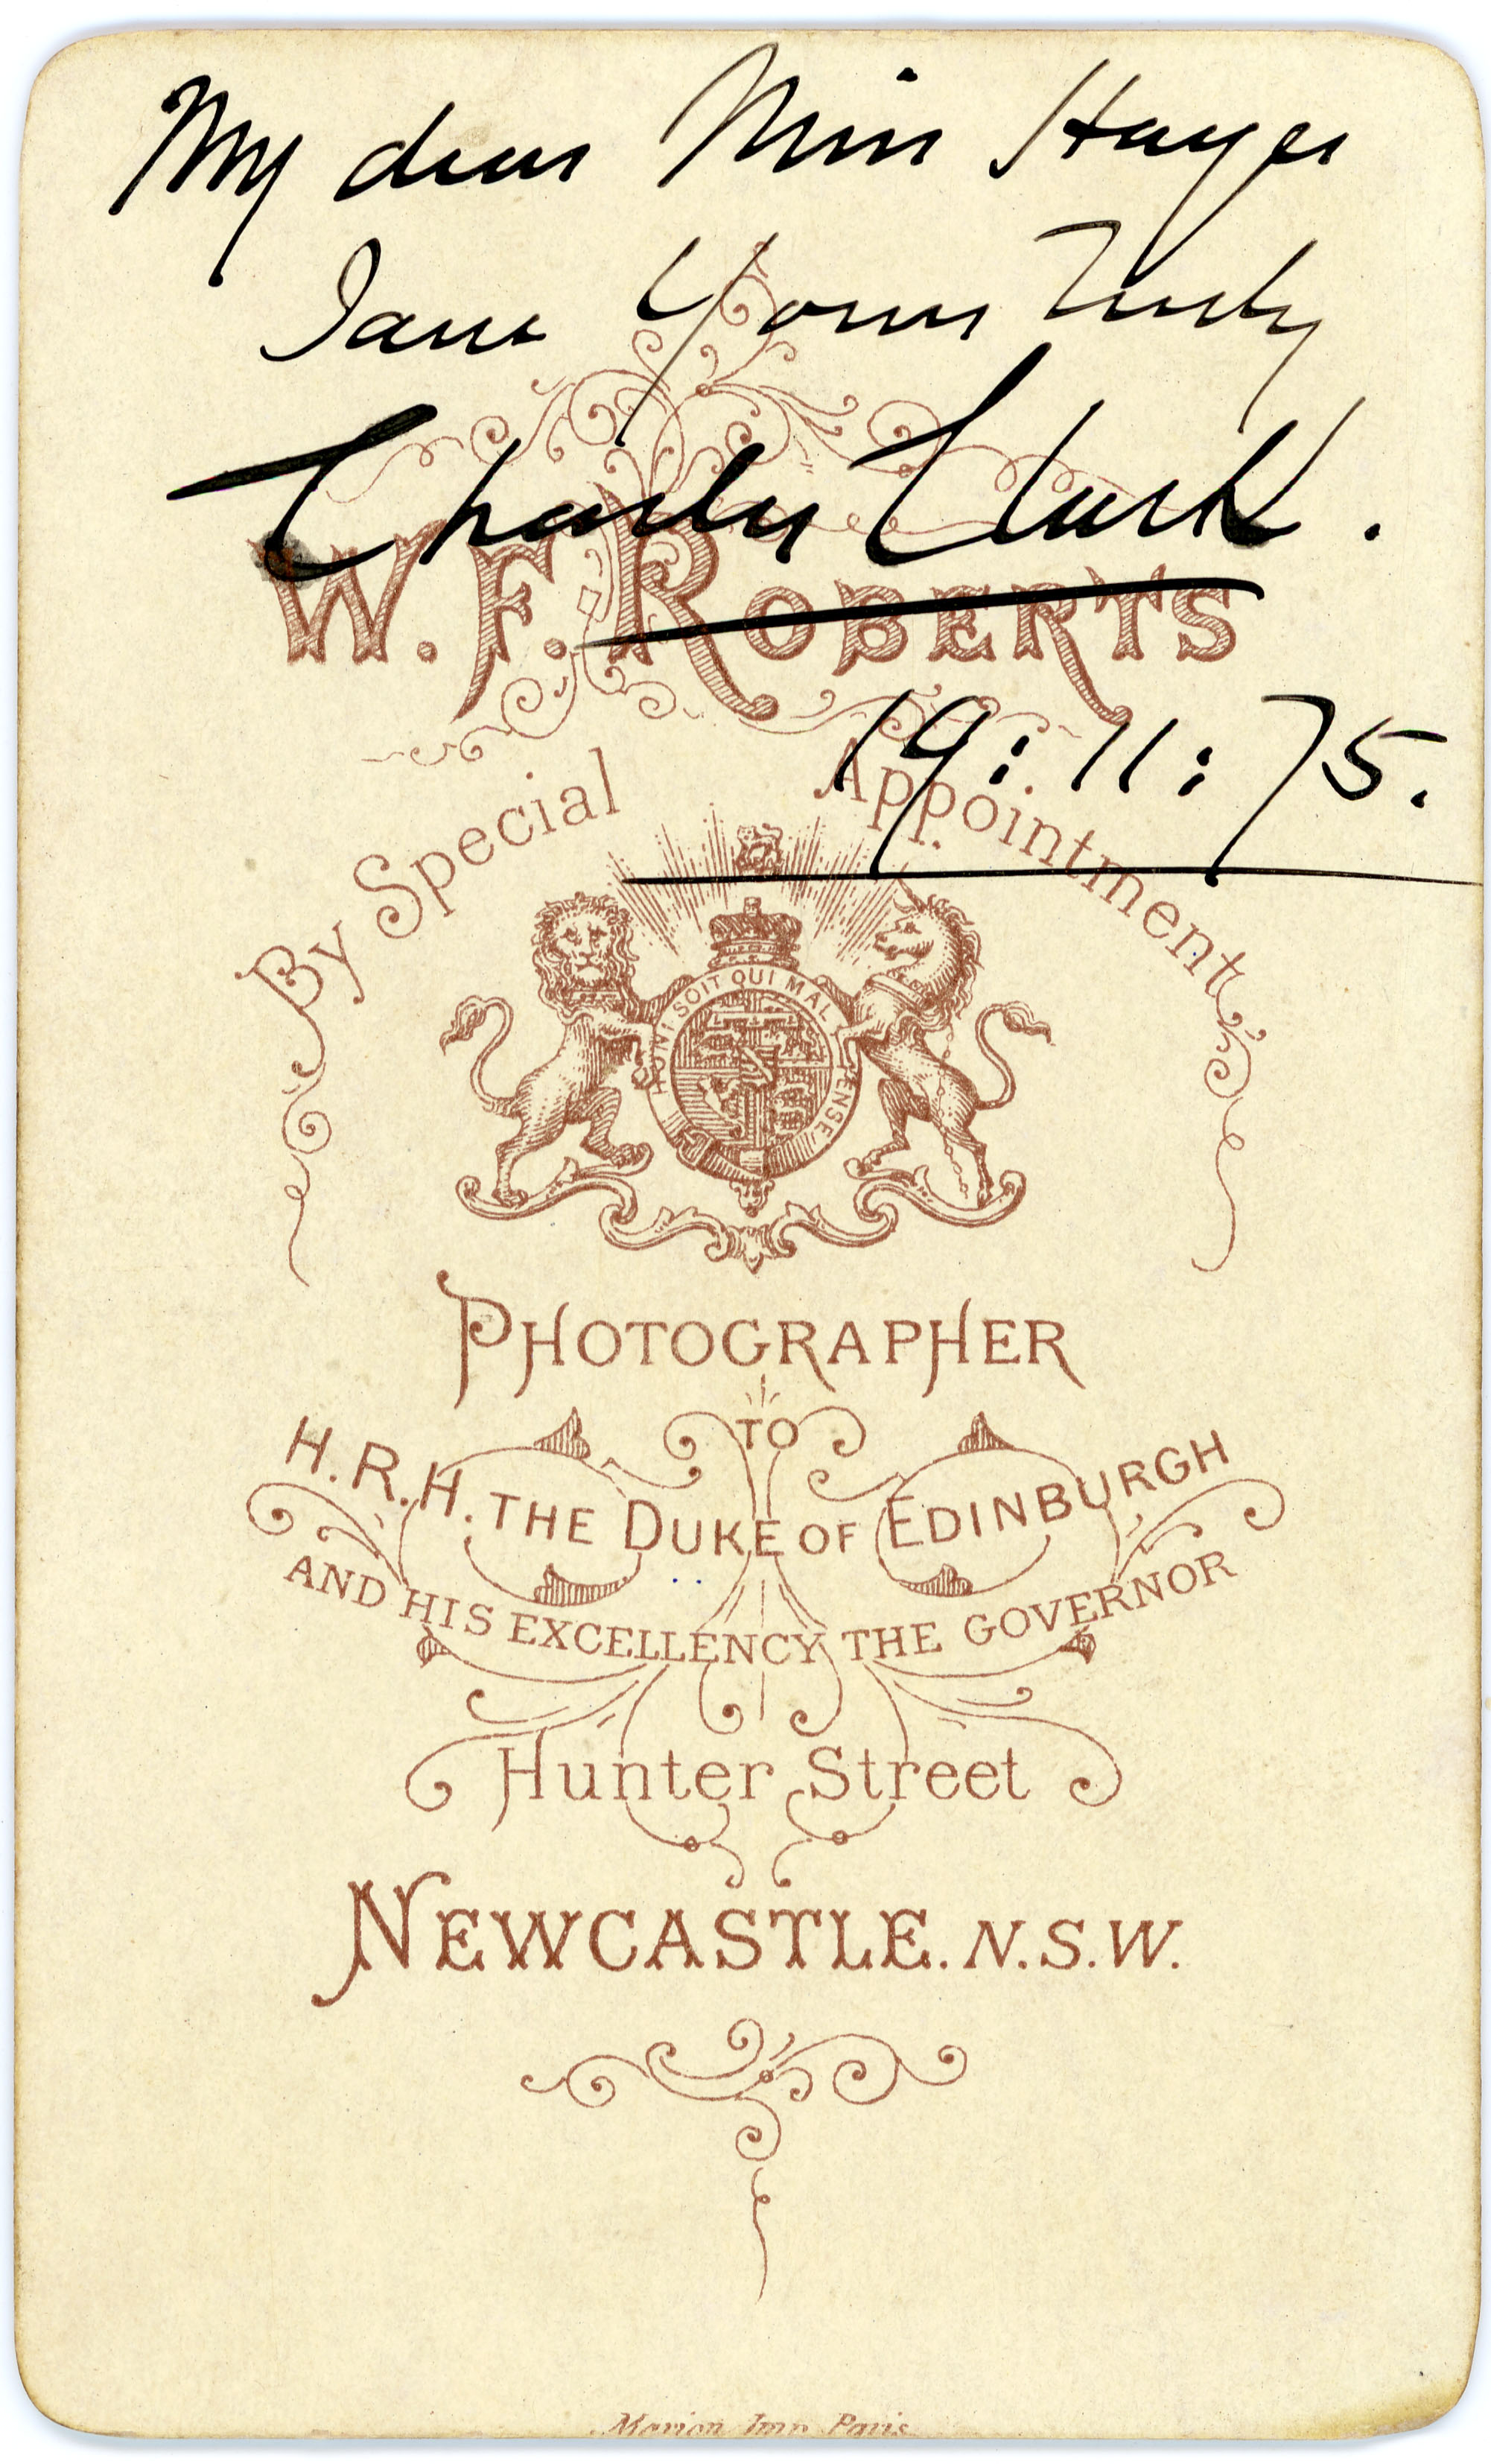 My dear Miss Hayes
I am Yours Truly
Charles Clark.
W. F. ROBERTS
19:11:75.
By Special Appointment
HONI SOIT QUI MAL Y PENSE
PHOTOGRAPHER
TO
H.R.H. THE DUKE OF EDINBURGH
AND HIS EXCELLENCY THE GOVERNOR
Hunter Street
NEWCASTLE. N.S.W.
Marion Imp Paris